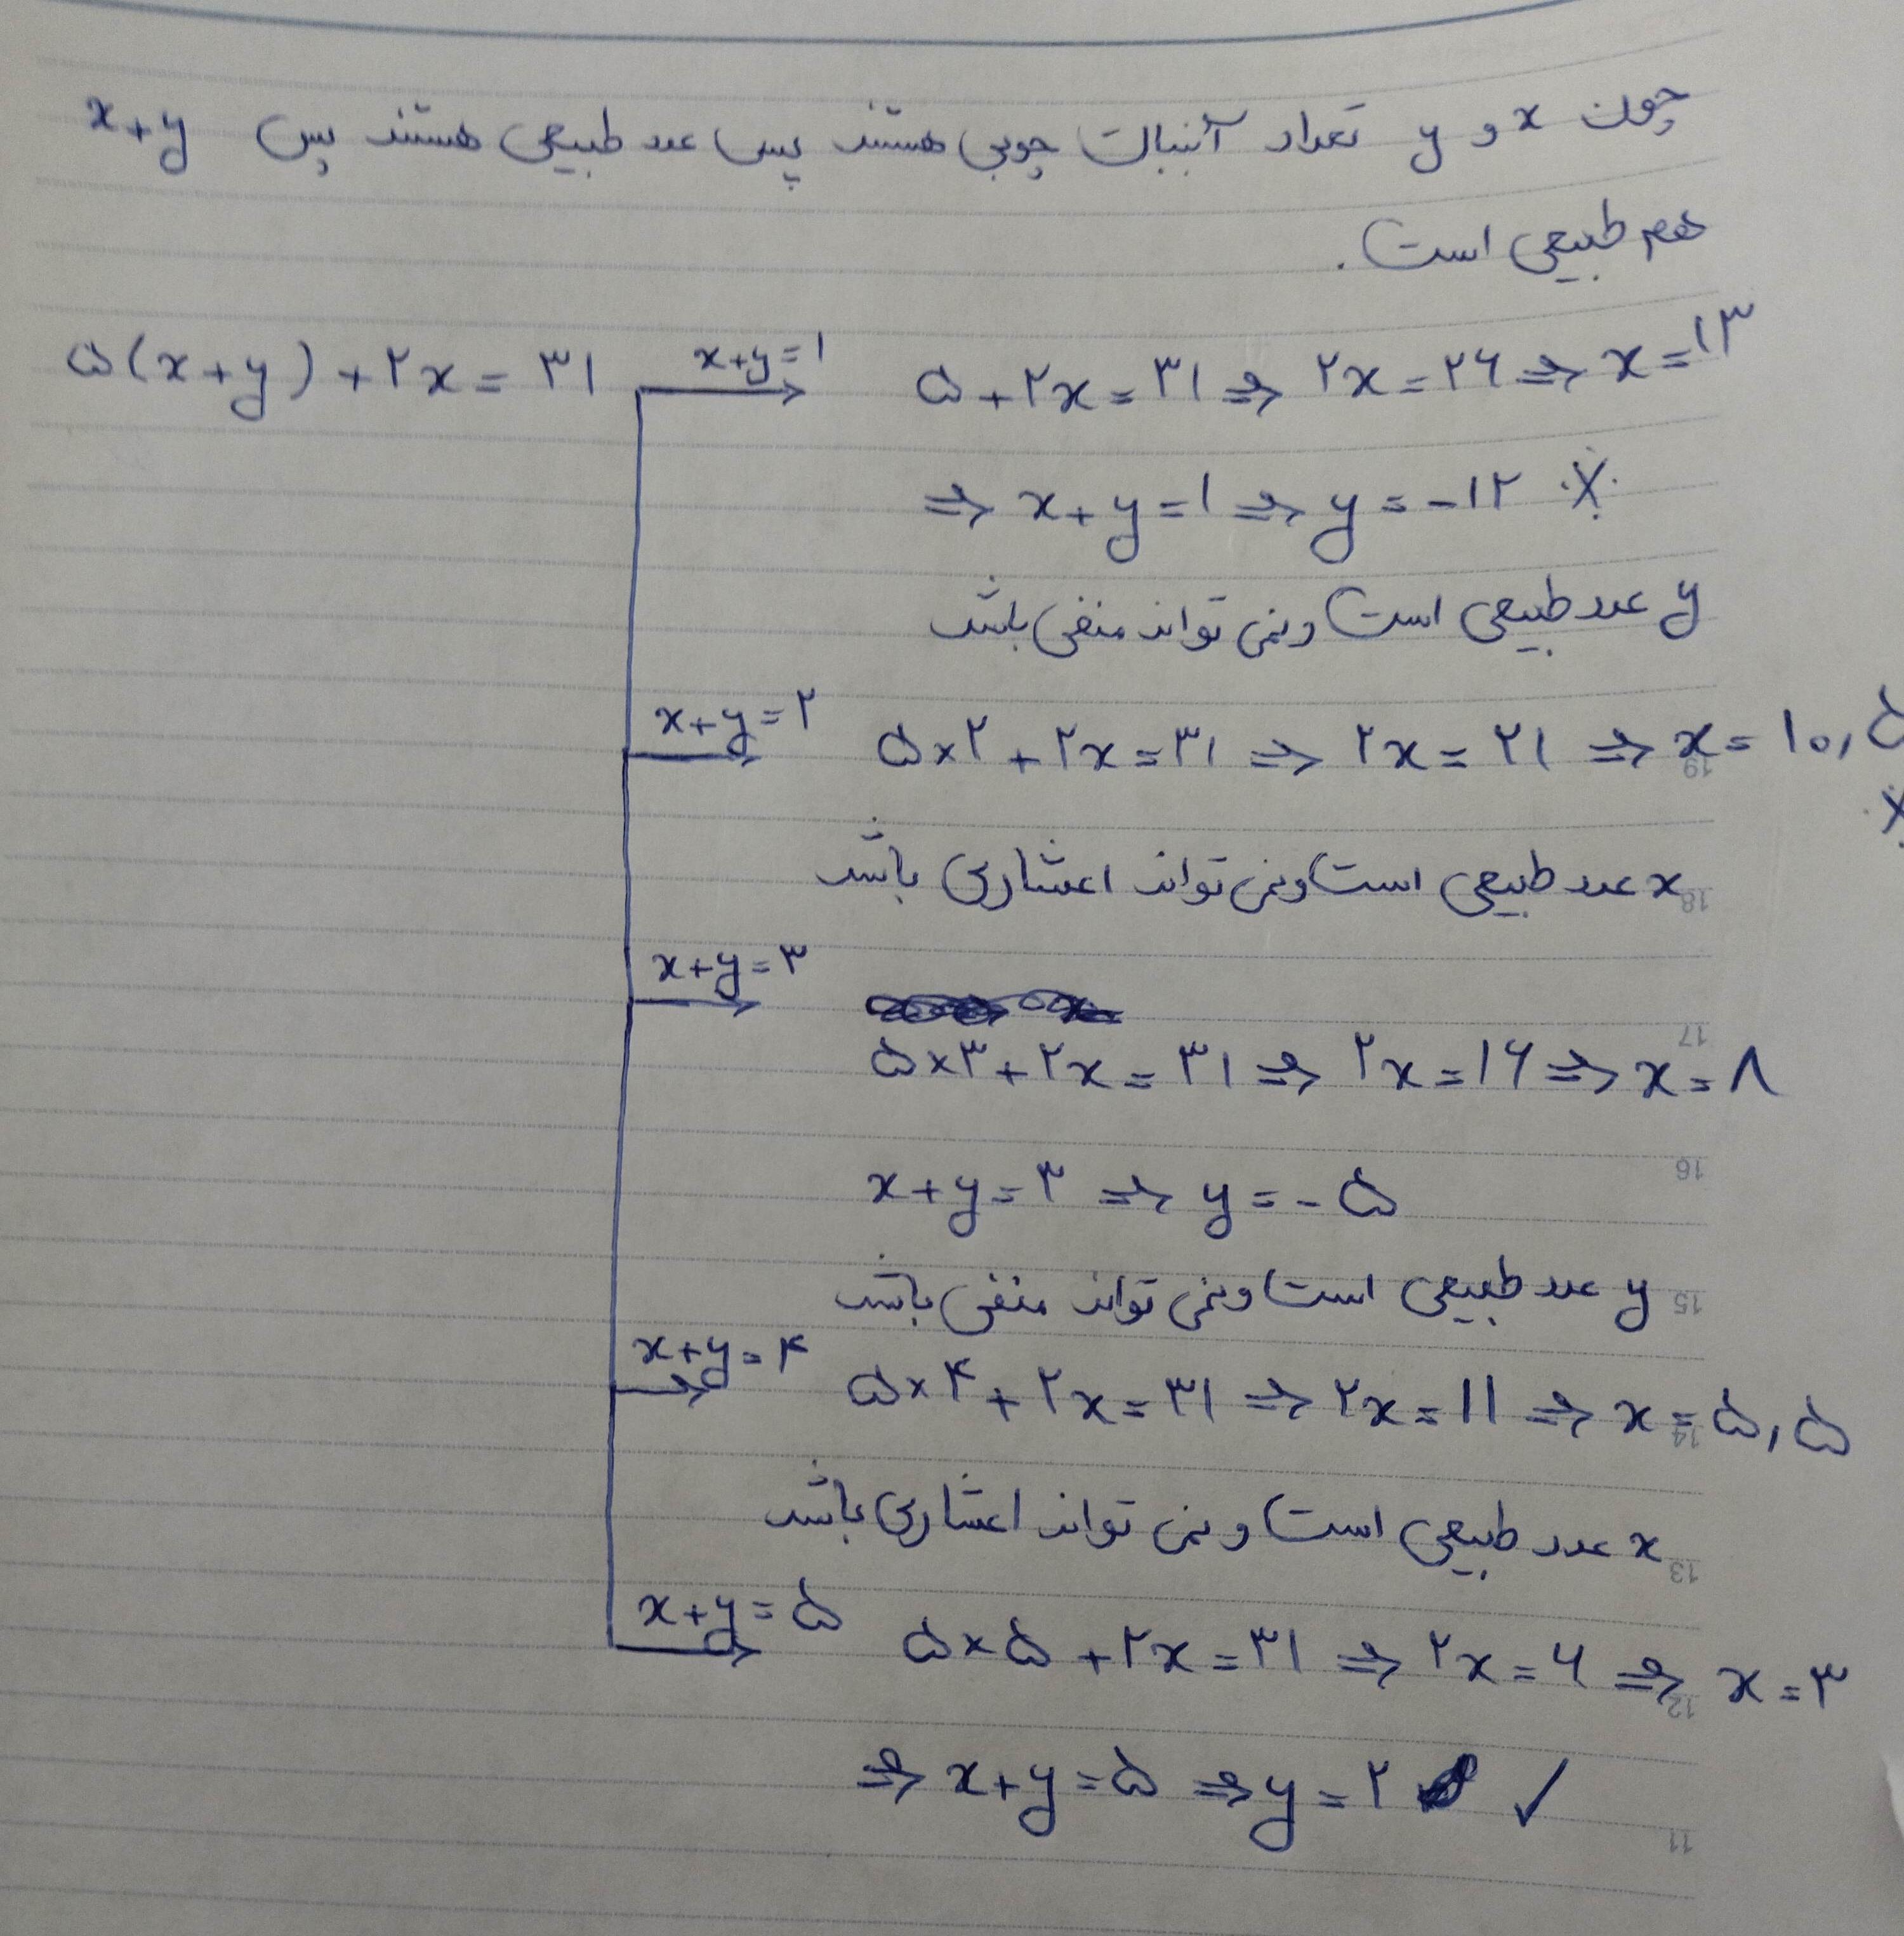 چون x و y تعداد آبنبات چوبی هستند پس عدد طبیعی هستند پس x+y
هم طبیعی است.
۵(x+y)+۲x=۳۱ x+y=۱ ۵+۲x=۳۱ ⇒ ۲x=۲۶ ⇒ x=۱۳
⇒ x+y=۱ ⇒ y=-۱۲ ×
y عدد طبیعی است و نمی تواند منفی باشد
x+y=۲ ۵×۲+۲x=۳۱ ⇒ ۲x=۲۱ ⇒ x=۱۰,۵
×
x عدد طبیعی است و نمی تواند اعشاری باشد
x+y=۳
۵×۳+۲x=۳۱ ⇒ ۲x=۱۶ ⇒ x=۸
x+y=۳ ⇒ y=-۵
y عدد طبیعی است و نمی تواند منفی باشد
x+y=۴ ۵×۴+۲x=۳۱ ⇒ ۲x=۱۱ ⇒ x=۵,۵
x عدد طبیعی است و نمی تواند اعشاری باشد
x+y=۵ ۵×۵+۲x=۳۱ ⇒ ۲x=۶ ⇒ x=۳
⇒ x+y=۵ ⇒ y=۲ ✓